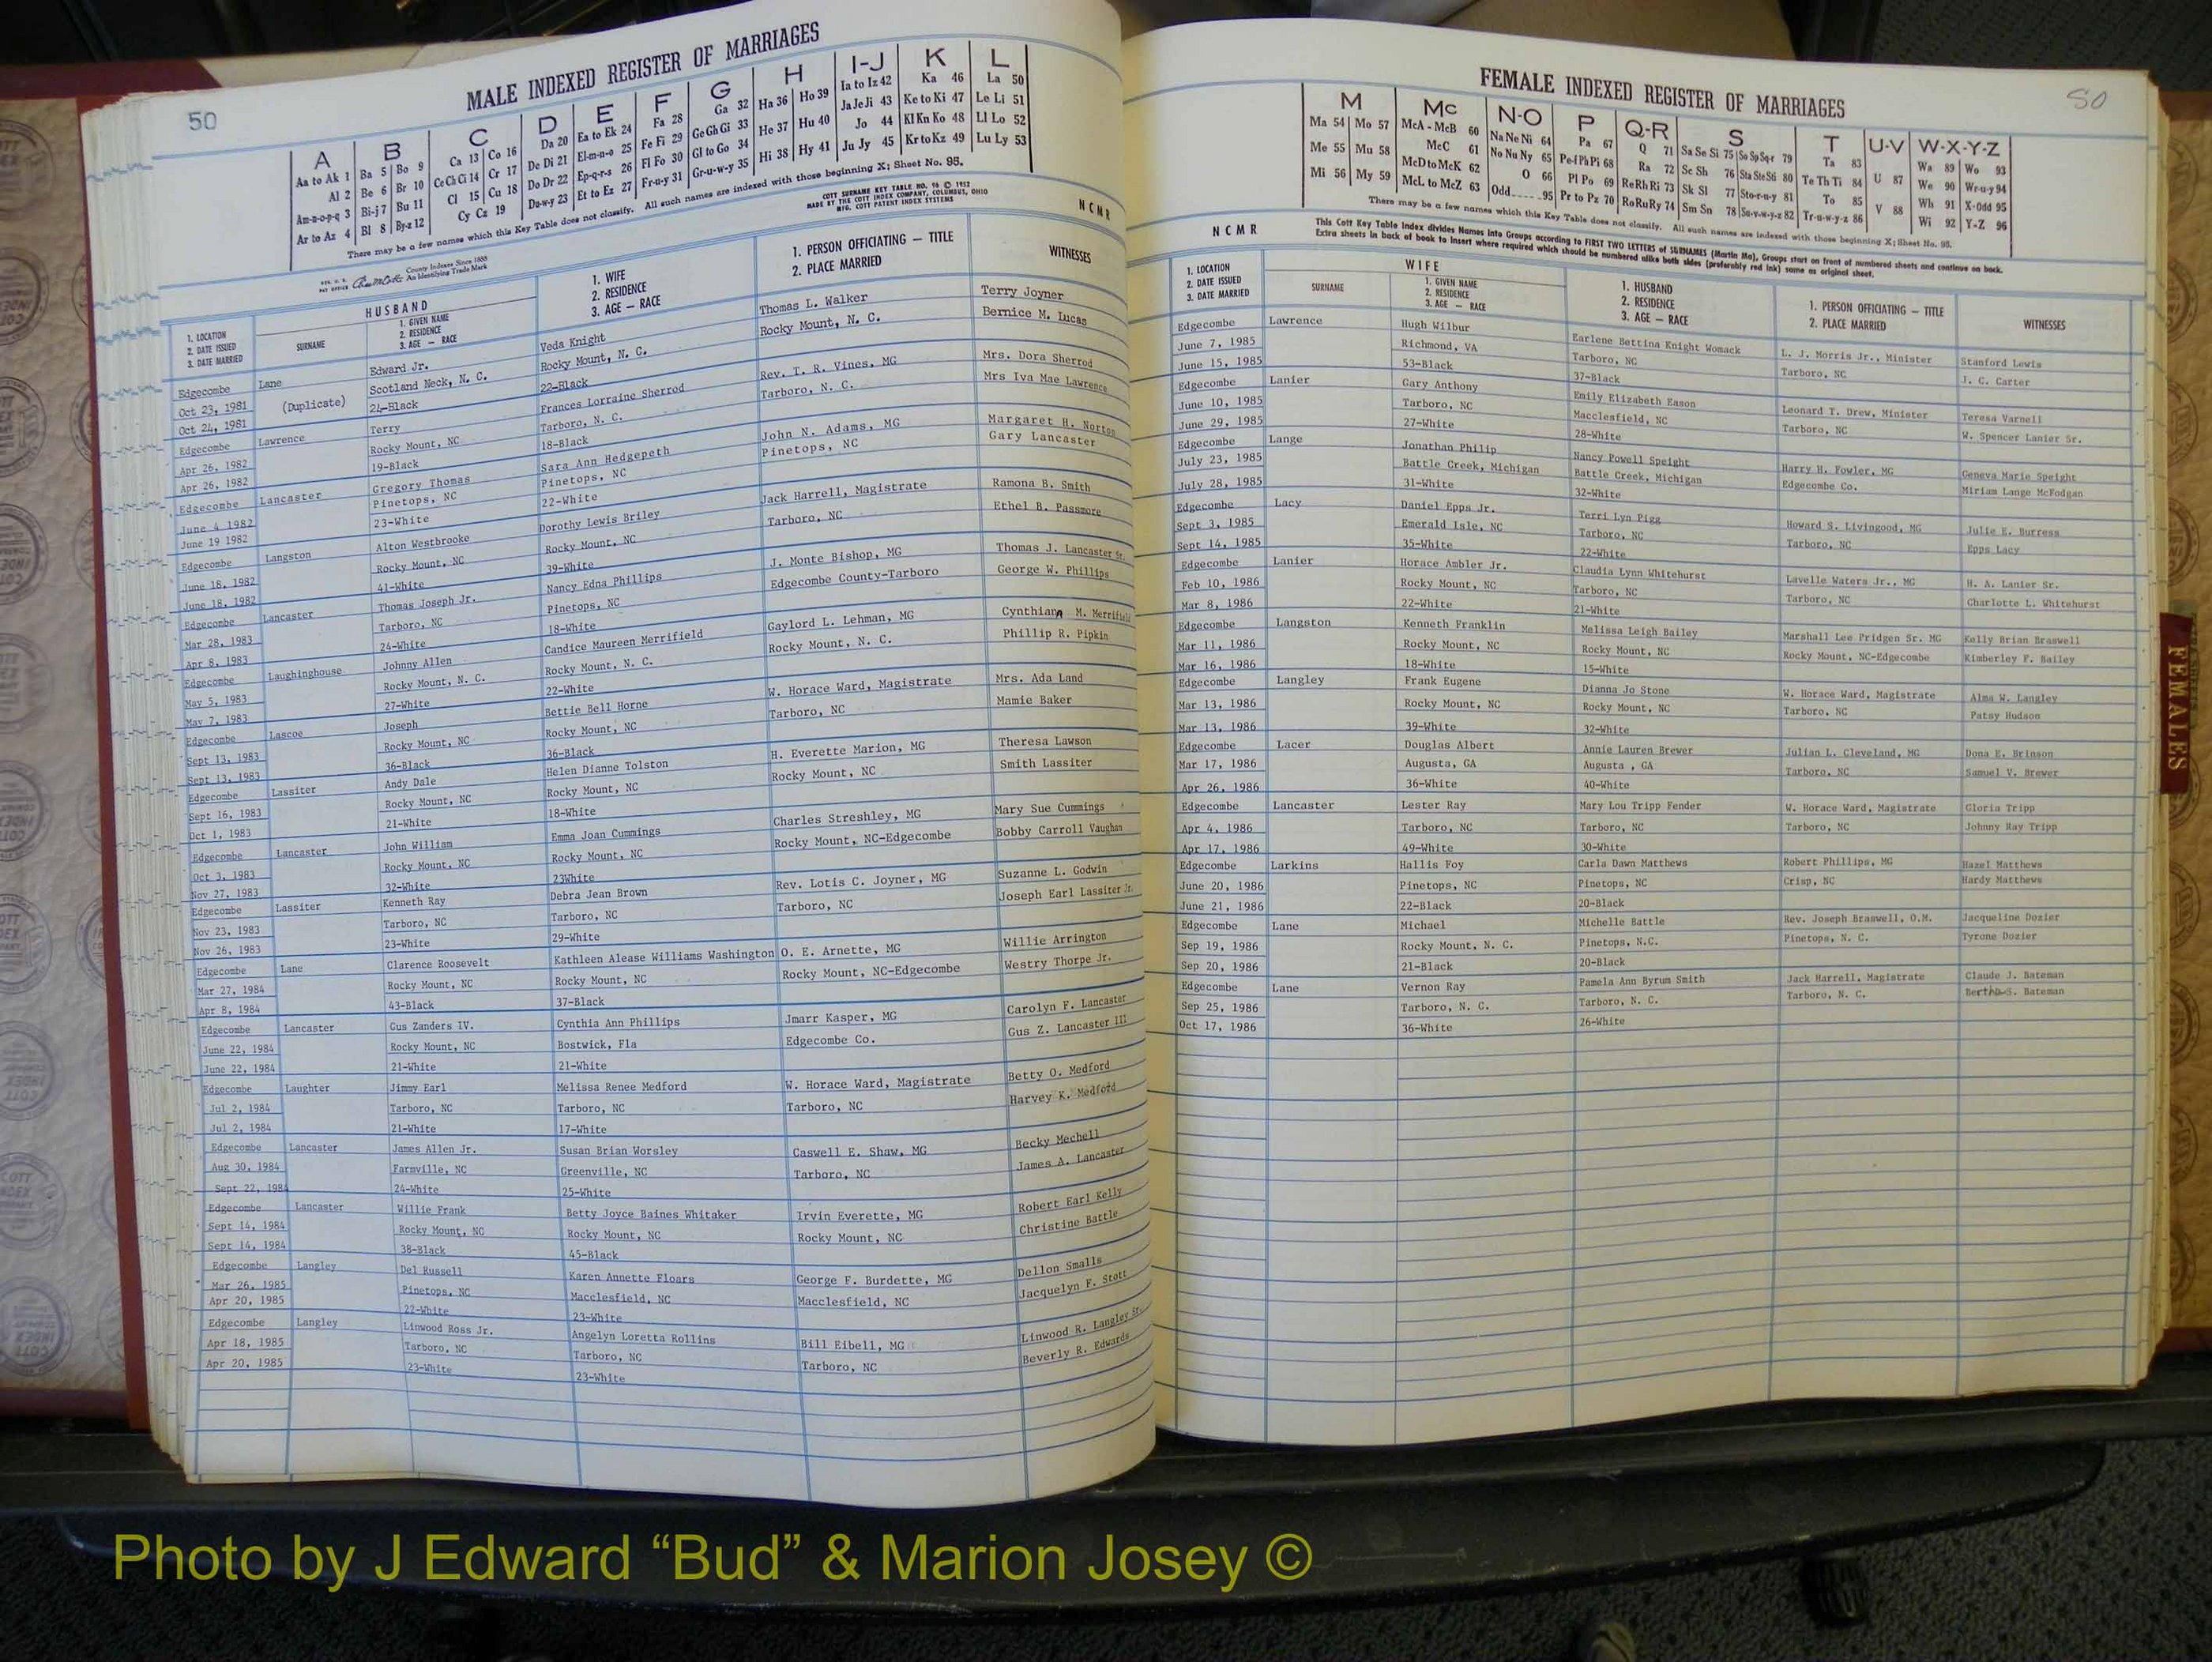 50
MALE INDEXED REGISTER OF MARRIAGES
A B C D E F G H I-J K L
Aa to Ak 1 Ba 5 Bo 9 Ca 13 Co 16 Da 20 Ea to Ek 24 Fa 28 Ga 32 Ha 36 Ho 39 Ia to Iz 42 Ka 46 La 50
Al 2 Be 6 Br 10 Ce Ch Ci 14 Cr 17 De Di 21 El-m-n-o 25 Fe Fi 29 Ge Gh Gi 33 He 37 Hu 40 Ja Je Ji 43 Ke to Ki 47 Le Li 51
Am-n-o-p-q 3 Bi-j 7 Bu 11 Cl 15 Cu 18 Do Dr 22 Ep-q-r-s 26 Fl Fo 30 Gl to Go 34 Hi 38 Hy 41 Jo 44 Kl Kn Ko 48 Ll Lo 52
Ar to Az 4 Bl 8 By-z 12 Cy Cz 19 Du-w-y 23 Et to Ez 27 Fr-u-y 31 Gr-u-w-y 35 Ju Jy 45 Kr to Kz 49 Lu Ly 53
There may be a few names which this Key Table does not classify. All such names are indexed with those beginning X; Sheet No. 95.
COTT SURNAME KEY TABLE NO. 96 © 1952
MADE BY THE COTT INDEX COMPANY, COLUMBUS, OHIO
MFG. COTT PATENT INDEX SYSTEMS
NCMR
County Indexes Since 1888
An Identifying Trade Mark
1. LOCATION
2. DATE ISSUED
3. DATE MARRIED
HUSBAND
SURNAME
1. GIVEN NAME
2. RESIDENCE
3. AGE — RACE
1. WIFE
2. RESIDENCE
3. AGE — RACE
1. PERSON OFFICIATING — TITLE
2. PLACE MARRIED
WITNESSES
Edgecombe Lane Edward Jr. Veda Knight Thomas L. Walker Terry Joyner
Oct 23, 1981 (Duplicate) Scotland Neck, N. C. Rocky Mount, N. C. Rocky Mount, N. C. Bernice M. Lucas
Oct 24, 1981 24-Black 22-Black
Edgecombe Lawrence Terry Frances Lorraine Sherrod Rev. T. R. Vines, MG Mrs. Dora Sherrod
Apr 26, 1982 Rocky Mount, NC Tarboro, N. C. Tarboro, N. C. Mrs Iva Mae Lawrence
Apr 26, 1982 19-Black 18-Black
Edgecombe Lancaster Gregory Thomas Sara Ann Hedgepeth John N. Adams, MG Margaret H. Norton
June 4 1982 Pinetops, NC Pinetops, NC Pinetops, NC Gary Lancaster
June 19 1982 23-White 22-White
Edgecombe Langston Alton Westbrooke Dorothy Lewis Briley Jack Harrell, Magistrate Ramona B. Smith
June 18, 1982 Rocky Mount, NC Rocky Mount, NC Tarboro, NC Ethel B. Passmore
June 18, 1982 41-White 39-White
Edgecombe Lancaster Thomas Joseph Jr. Nancy Edna Phillips J. Monte Bishop, MG Thomas J. Lancaster Sr.
Mar 28, 1983 Tarboro, NC Pinetops, NC Edgecombe County-Tarboro George W. Phillips
Apr 8, 1983 24-White 18-White
Edgecombe Laughinghouse Johnny Allen Candice Maureen Merrifield Gaylord L. Lehman, MG Cynthiann M. Merrifield
May 5, 1983 Rocky Mount, N. C. Rocky Mount, N. C. Rocky Mount, N. C. Phillip R. Pipkin
May 7, 1983 27-White 22-White
Edgecombe Lascoe Joseph Bettie Bell Horne W. Horace Ward, Magistrate Mrs. Ada Land
Sept 13, 1983 Rocky Mount, NC Rocky Mount, NC Tarboro, NC Mamie Baker
Sept 13, 1983 36-Black 36-Black
Edgecombe Lassiter Andy Dale Helen Dianne Tolston H. Everette Marion, MG Theresa Lawson
Sept 16, 1983 Rocky Mount, NC Rocky Mount, NC Rocky Mount, NC Smith Lassiter
Oct 1, 1983 21-White 18-White
Edgecombe Lancaster John William Emma Joan Cummings Charles Streshley, MG Mary Sue Cummings
Oct 3, 1983 Rocky Mount, NC Rocky Mount, NC Rocky Mount, NC-Edgecombe Bobby Carroll Vaughan
Nov 27, 1983 32-White 23White
Edgecombe Lassiter Kenneth Ray Debra Jean Brown Rev. Lotis C. Joyner, MG Suzanne L. Godwin
Nov 23, 1983 Tarboro, NC Tarboro, NC Tarboro, NC Joseph Earl Lassiter Jr.
Nov 26, 1983 23-White 29-White
Edgecombe Lane Clarence Roosevelt Kathleen Alease Williams Washington O. E. Arnette, MG Willie Arrington
Mar 27, 1984 Rocky Mount, NC Rocky Mount, NC Rocky Mount, NC-Edgecombe Westry Thorpe Jr.
Apr 8, 1984 43-Black 37-Black
Edgecombe Lancaster Gus Zanders IV. Cynthia Ann Phillips Jmarr Kasper, MG Carolyn F. Lancaster
June 22, 1984 Rocky Mount, NC Bostwick, Fla Edgecombe Co. Gus Z. Lancaster III
June 22, 1984 21-White 21-White
Edgecombe Laughter Jimmy Earl Melissa Renee Medford W. Horace Ward, Magistrate Betty O. Medford
Jul 2, 1984 Tarboro, NC Tarboro, NC Tarboro, NC Harvey K. Medford
Jul 2, 1984 21-White 17-White
Edgecombe Lancaster James Allen Jr. Susan Brian Worsley Caswell E. Shaw, MG Becky Mechell
Aug 30, 1984 Farmville, NC Greenville, NC Tarboro, NC James A. Lancaster
Sept 22, 1984 24-White 25-White
Edgecombe Lancaster Willie Frank Betty Joyce Baines Whitaker Irvin Everette, MG Robert Earl Kelly
Sept 14, 1984 Rocky Mount, NC Rocky Mount, NC Rocky Mount, NC Christine Battle
Sept 14, 1984 38-Black 45-Black
Edgecombe Langley Del Russell Karen Annette Floars George F. Burdette, MG Dellon Smalls
Mar 26, 1985 Pinetops, NC Macclesfield, NC Macclesfield, NC Jacquelyn F. Stott
Apr 20, 1985 22-White 23-White
Edgecombe Langley Linwood Ross Jr. Angelyn Loretta Rollins Bill Eibell, MG Linwood R. Langley Sr.
Apr 18, 1985 Tarboro, NC Tarboro, NC Tarboro, NC Beverly R. Edwards
Apr 20, 1985 23-White 23-White
FEMALE INDEXED REGISTER OF MARRIAGES
50
M Mc N-O P Q-R S T U-V W-X-Y-Z
Ma 54 Mo 57 McA - McB 60 Na Ne Ni 64 Pa 67 Q 71 Sa Se Si 75 So Sp Sq-r 79 Ta 83 U 87 Wa 89 Wo 93
Me 55 Mu 58 McC 61 No Nu Ny 65 Pe-f Ph Pi 68 Ra 72 Sc Sh 76 Sta Ste Sti 80 Te Th Ti 84 V 88 We 90 Wr-u-y 94
Mi 56 My 59 McD to McK 62 O 66 Pl Po 69 Re Rh Ri 73 Sk Sl 77 Sto-r-u-y 81 To 85 Wh 91 X-Odd 95
McL to McZ 63 Odd 95 Pr to Pz 70 Ro Ru Ry 74 Sm Sn 78 Su-v-w-y-z 82 Tr-u-w-y-z 86 Wi 92 Y-Z 96
There may be a few names which this Key Table does not classify. All such names are indexed with those beginning X; Sheet No. 95.
NCMR
This Cott Key Table Index divides Names into Groups according to FIRST TWO LETTERS of SURNAMES (Martin Ma), Groups start on front of numbered sheets and continue on back.
Extra sheets in back of book to insert where required which should be numbered alike both sides (preferably red ink) same as original sheet.
1. LOCATION
2. DATE ISSUED
3. DATE MARRIED
WIFE
SURNAME
1. GIVEN NAME
2. RESIDENCE
3. AGE — RACE
1. HUSBAND
2. RESIDENCE
3. AGE — RACE
1. PERSON OFFICIATING — TITLE
2. PLACE MARRIED
WITNESSES
Edgecombe Lawrence Hugh Wilbur Earlene Bettina Knight Womack L. J. Morris Jr., Minister Stanford Lewis
June 7, 1985 Richmond, VA Tarboro, NC Tarboro, NC J. C. Carter
June 15, 1985 53-Black 37-Black
Edgecombe Lanier Gary Anthony Emily Elizabeth Eason Leonard T. Drew, Minister Teresa Varnell
June 10, 1985 Tarboro, NC Macclesfield, NC Tarboro, NC W. Spencer Lanier Sr.
June 29, 1985 27-White 28-White
Edgecombe Lange Jonathan Philip Nancy Powell Speight Harry H. Fowler, MG Geneva Marie Speight
July 23, 1985 Battle Creek, Michigan Battle Creek, Michigan Edgecombe Co. Miriam Lange McFodgan
July 28, 1985 31-White 32-White
Edgecombe Lacy Daniel Epps Jr. Terri Lyn Pigg Howard S. Livingood, MG Julie E. Burress
Sept 3, 1985 Emerald Isle, NC Tarboro, NC Tarboro, NC Epps Lacy
Sept 14, 1985 35-White 22-White
Edgecombe Lanier Horace Ambler Jr. Claudia Lynn Whitehurst Lavelle Waters Jr., MG H. A. Lanier Sr.
Feb 10, 1986 Rocky Mount, NC Tarboro, NC Tarboro, NC Charlotte L. Whitehurst
Mar 8, 1986 22-White 21-White
Edgecombe Langston Kenneth Franklin Melissa Leigh Bailey Marshall Lee Pridgen Sr. MG Kelly Brian Braswell
Mar 11, 1986 Rocky Mount, NC Rocky Mount, NC Rocky Mount, NC-Edgecombe Kimberley F. Bailey
Mar 16, 1986 18-White 15-White
Edgecombe Langley Frank Eugene Dianna Jo Stone W. Horace Ward, Magistrate Alma W. Langley
Mar 13, 1986 Rocky Mount, NC Rocky Mount, NC Tarboro, NC Patsy Hudson
Mar 13, 1986 39-White 32-White
Edgecombe Lacer Douglas Albert Annie Lauren Brewer Julian L. Cleveland, MG Dona E. Brinson
Mar 17, 1986 Augusta, GA Augusta , GA Tarboro, NC Samuel V. Brewer
Apr 26, 1986 36-White 40-White
Edgecombe Lancaster Lester Ray Mary Lou Tripp Fender W. Horace Ward, Magistrate Gloria Tripp
Apr 4, 1986 Tarboro, NC Tarboro, NC Tarboro, NC Johnny Ray Tripp
Apr 17, 1986 49-White 30-White
Edgecombe Larkins Hallis Foy Carla Dawn Matthews Robert Phillips, MG Hazel Matthews
June 20, 1986 Pinetops, NC Pinetops, NC Crisp, NC Hardy Matthews
June 21, 1986 22-Black 20-Black
Edgecombe Lane Michael Michelle Battle Rev. Joseph Braswell, O.M. Jacqueline Dozier
Sep 19, 1986 Rocky Mount, N. C. Pinetops, N.C. Pinetops, N. C. Tyrone Dozier
Sep 20, 1986 21-Black 20-Black
Edgecombe Lane Vernon Ray Pamela Ann Byrum Smith Jack Harrell, Magistrate Claude J. Bateman
Sep 25, 1986 Tarboro, N. C. Tarboro, N. C. Tarboro, N. C. Bertha S. Bateman
Oct 17, 1986 36-White 26-White
FEMALES
Photo by J Edward “Bud” & Marion Josey ©